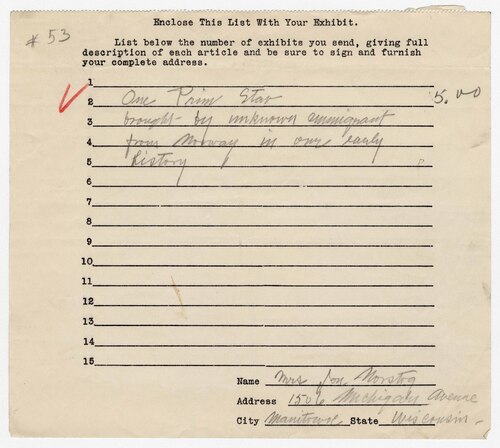 # 53
Enclose This List With Your Exhibit.
List below the number of exhibits you send, giving full
description of each article and be sure to sign and furnish
your complete address.
1
2 One Prim Star 5.00
3 brought by unknown emmigrant
4 from Norway in our early
5 history
6
7
8
9
10
11
12
13
14
15
Name Mrs Jon. Norstog
Address 1506 Michigan Avenue
City Manitowoc State Wisconsin